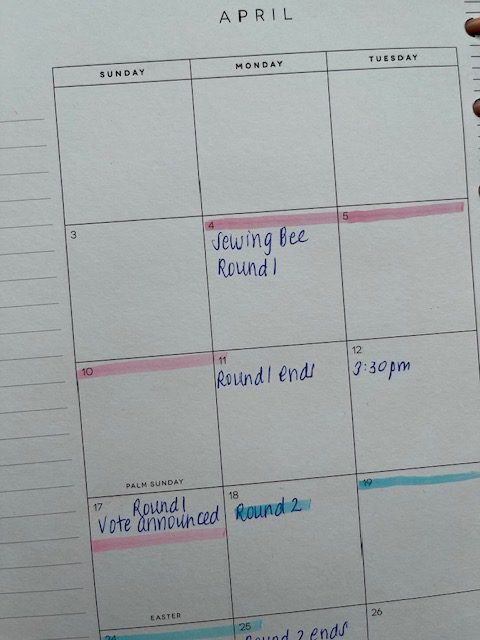 APRIL
SUNDAY MONDAY TUESDAY
3 4 5
Sewing Bee
Round 1
10 11 12
Round 1 ends 3:30pm
PALM SUNDAY
17 18 19
Round 1
Vote announced
Round 2
EASTER
24 25 26
Round 2 ends